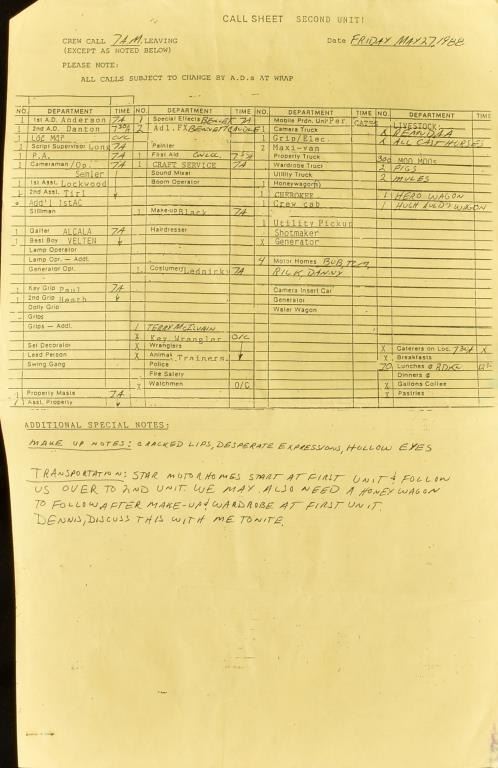 CALL SHEET SECOND UNIT!
CREW CALL 7AM, LEAVING
Date FRIDAY MAY 27, 1988
(EXCEPT AS NOTED BELOW)
PLEASE NOTE:
ALL CALLS SUBJECT TO CHANGE BY A.D.s AT WRAP
NO. DEPARTMENT TIME
1 1st A.D. Anderson 7A
1 2nd A.D. Danton 730A
1 LOC MGR O/C
1 Script Supervisor Long 7A
1 P.A. 7A
1 Cameraman/Op. 7A
Semler
1 1st Asst. Lockwood
1 2nd Asst. Tirl
Add'l 1stAC
Stillman
1 Gaffer ALCALA 7A
1 Best Boy VELTEN
Lamp Operator
Lamp Opr. — Addl.
Generator Opr.
1 Key Grip Paul 7A
1 2nd Grip Heath
Dolly Grip
Grips
Grips — Addl.
Set Decorator
Lead Person
Swing Gang
1 Property Maste 7A
1 Asst. Property
NO. DEPARTMENT TIME
1 Special Effects 7A
2 Adl. FX
Painter
1 First Aid
1 CRAFT SERVICE 7A
Sound Mixer
Boom Operator
1 Make-up Black 7A
Hairdresser
1 Costumer Lednicky 7A
1 TERRY McILVAIN
X Key Wrangler O/C
X Wranglers
X Animal Trainers
Police
Fire Safety
X Watchmen O/C
NO. DEPARTMENT TIME
Mobile Prdn. Unit Per
1 Camera Truck
1 Grip/Elec.
2 Maxi-van
Property Truck
Wardrobe Truck
Utility Truck
1 Honeywagon
1 CHEROKEE
1 Crew cab
1 Utility Pickup
Shotmaker
X Generator
4 Motor Homes BOB, TOM,
RICK, DANNY
Camera Insert Car
Generator
Water Wagon
NO. DEPARTMENT TIME
LIVESTOCK:
X REMUDA
X ALL CAST HORSES
300 MOO MOOS
2 PIGS
2 MULES
1 HERO WAGON
1 WAGON
X Caterers on Loc.
X Breakfasts
70 Lunches @
Dinners @
X Gallons Coffee
X Pastries
ADDITIONAL SPECIAL NOTES:
MAKE UP NOTES: CRACKED LIPS, DESPERATE EXPRESSIONS, HOLLOW EYES
TRANSPORTATION: STAR MOTORHOMES START AT FIRST UNIT & FOLLOW
US OVER TO 2ND UNIT. WE MAY ALSO NEED A HONEYWAGON
TO FOLLOW AFTER MAKE-UP & WARDROBE AT FIRST UNIT.
DENNIS, DISCUSS THIS WITH ME TONITE.